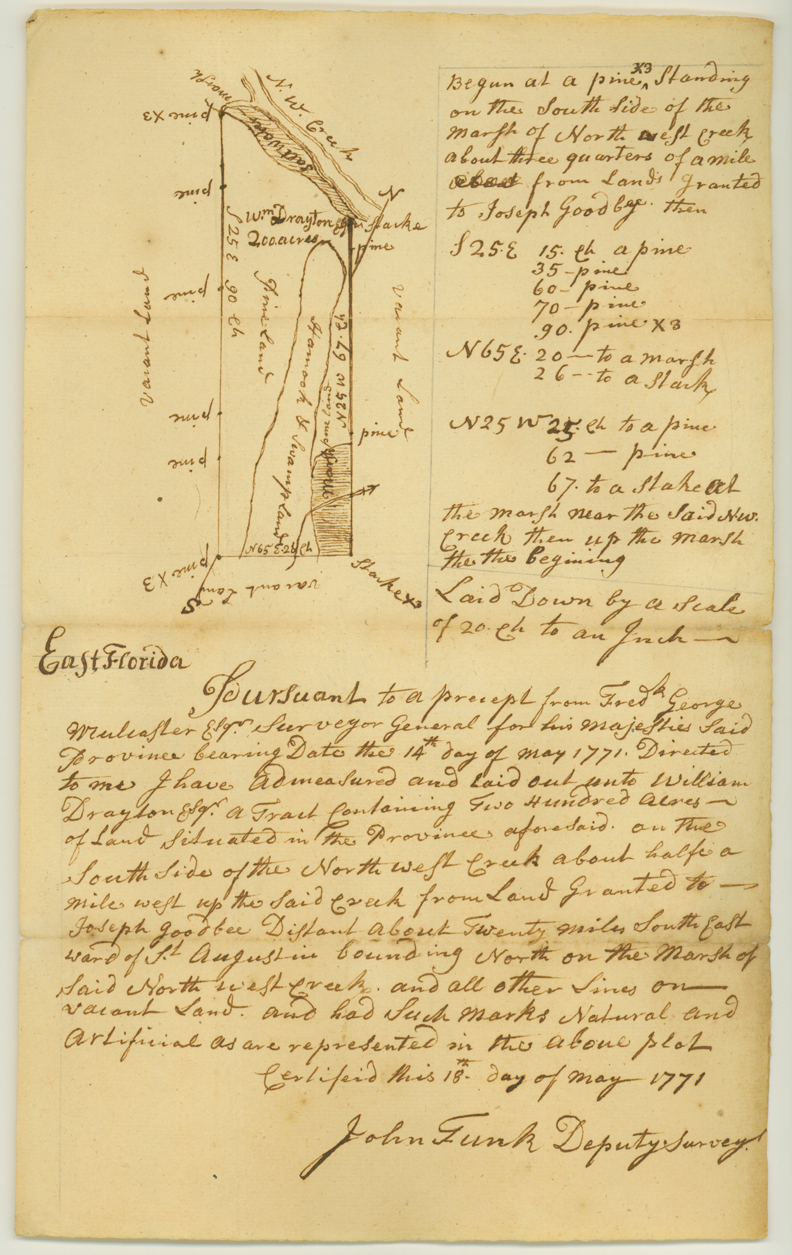 marsh
N. W. Creek
Salt marsh
pine X3
pine
pine
pine
pine
pine X3
Vacant Land
S 25 E 90 Ch
Wm. Drayton Esqr
200 acres
Stacke
N
pine
Pine Land
Hamock & Swamp land
N 25 W 67 Ch
Vacant Land
pine
N 65 E 26 Ch
S
vacant Land
Stacke X3
Begun at a pine X3 Standing
on the South Side of the
Marsh of North west Creek
about three quarters of a mile
from Lands granted
to Joseph Goodbee. then
S 25. E 15. Ch a pine
35 - pine
60 - pine
70 - pine
90. pine X3
N 65 E. 20 — to a marsh
26 - - to a Stack
N 25 W 25. Ch to a pine
62 — pine
67. to a Stake at
the marsh near the Said N W.
Creek then up the Marsh
the the begining
Laid Down by a Scale
of 20. Ch to an Inch —
East Florida
Pursuant to a precept from Fredk George
Mulcaster Esqr. Surveyor General for his majesties Said
Province bearing Date the 14th day of may 1771. Directed
to me I have Admeasured and laid out unto William
Drayton Esqr. a Tract Containing Two Hundred Acres —
of Land Situated in the Province aforesaid. on the
South Side of the North west Creek about halfe a
mile west up the Said Creek from Land Granted to —
Joseph Goodbee Distant About Twenty miles South East
ward of St. Augustin bounding North on the Marsh of
Said North west Creek. and all other Lines on —
vacant Land. and had Such Marks Natural and
Artificial as are represented in the above plat
Certifeid this 18th day of may 1771
John Funk Deputy Surveyr